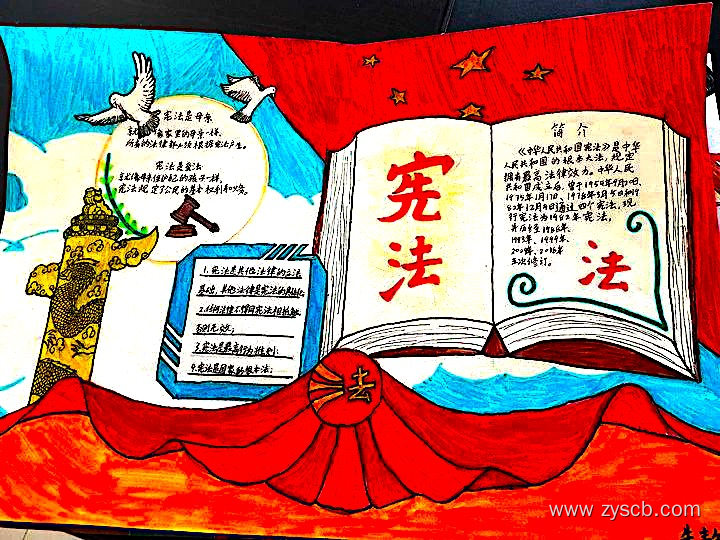 宪法是母亲
就像家里的母亲一样,
所有的法律都必须根据宪法产生。
宪法是爱法
就像母亲住护她的孩子一样,
宪法规定了公民的基本权利和义务。
1.宪法是其他法律的立法
基础,其他法律是宪法的具体化;
2.任何法律不得同宪法相抵触,
否则无效;
3.宪法是最高行为准则;
4.宪法是国家的根本法;
宪
法
简介
《中华人民共和国宪法》是中华
人民共和国的根本大法,规定
拥有最高法律效力。中华人民
共和国成立后,曾于1954年9月20日、
1975年1月17日、1978年3月5日和19
82年12月4日通过四个宪法,现
行宪法为1982年宪法,
并历经1988年、
1993年、1999年、
2004年、2018年
五次修订。
法
法
www.zyscb.com